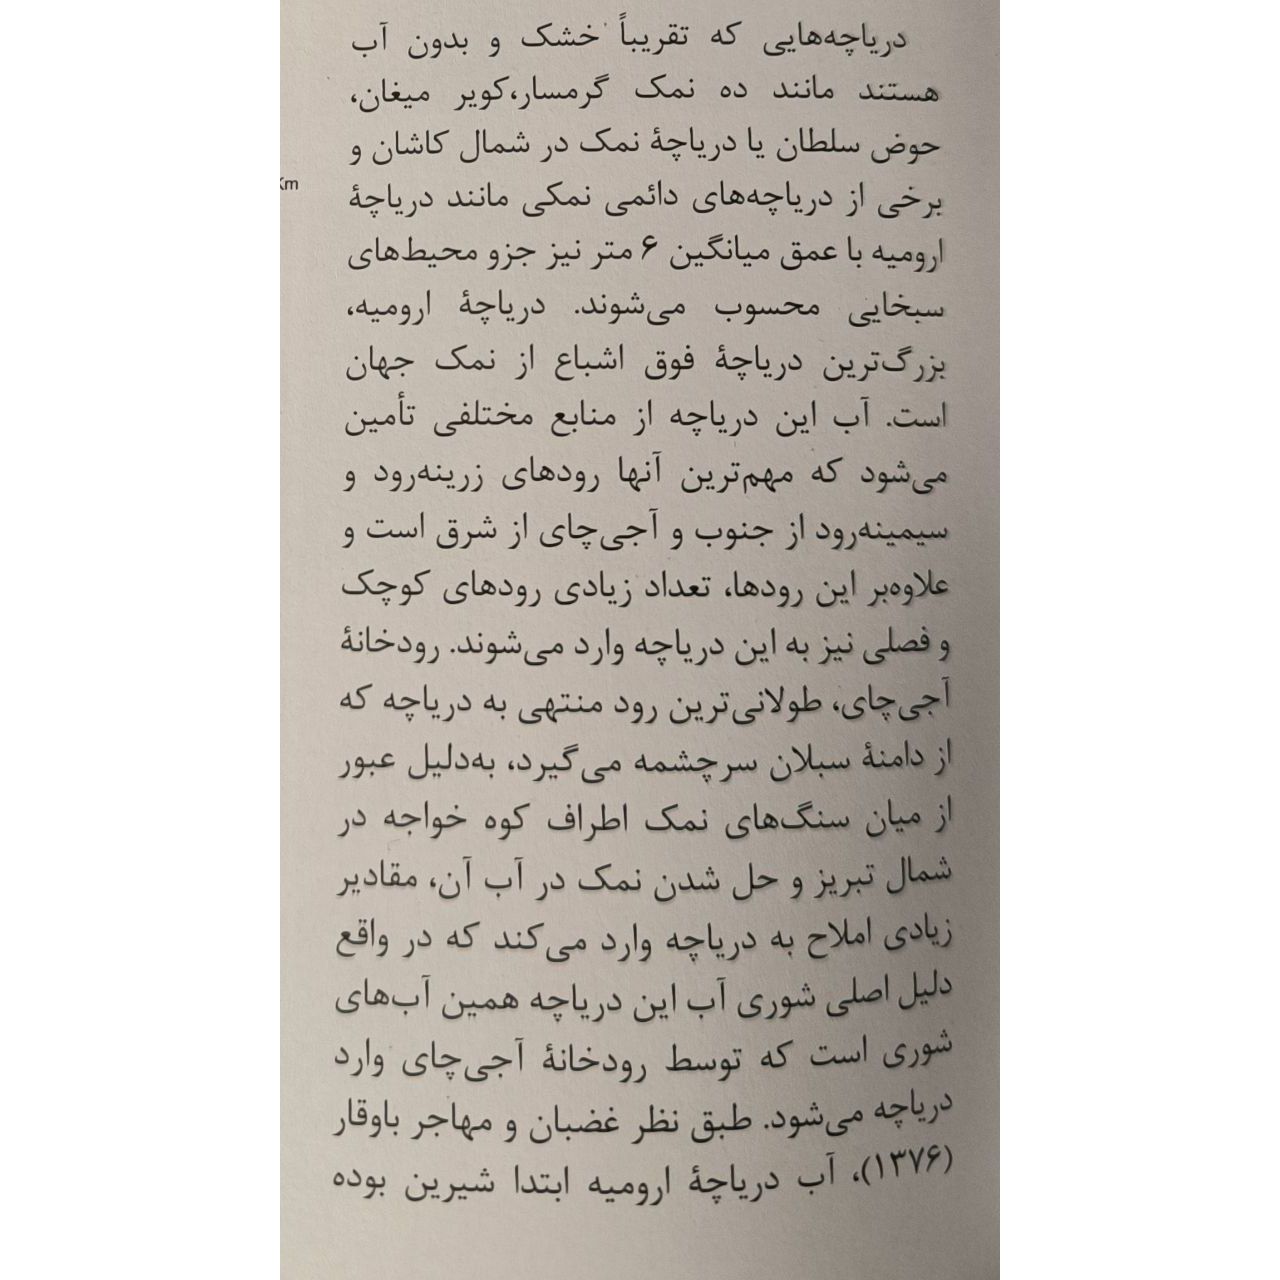 دریاچه‌هایی که تقریباً خشک و بدون آب
هستند مانند ده نمک گرمسار،کویر میغان،
حوض سلطان یا دریاچهٔ نمک در شمال کاشان و
برخی از دریاچه‌های دائمی نمکی مانند دریاچهٔ
ارومیه با عمق میانگین ۶ متر نیز جزو محیط‌های
سبخایی محسوب می‌شوند. دریاچهٔ ارومیه،
بزرگ‌ترین دریاچهٔ فوق اشباع از نمک جهان
است. آب این دریاچه از منابع مختلفی تأمین
می‌شود که مهم‌ترین آنها رودهای زرینه‌رود و
سیمینه‌رود از جنوب و آجی‌چای از شرق است و
علاوه‌بر این رودها، تعداد زیادی رودهای کوچک
و فصلی نیز به این دریاچه وارد می‌شوند. رودخانهٔ
آجی‌چای، طولانی‌ترین رود منتهی به دریاچه که
از دامنهٔ سبلان سرچشمه می‌گیرد، به‌دلیل عبور
از میان سنگ‌های نمک اطراف کوه خواجه در
شمال تبریز و حل شدن نمک در آب آن، مقادیر
زیادی املاح به دریاچه وارد می‌کند که در واقع
دلیل اصلی شوری آب این دریاچه همین آب‌های
شوری است که توسط رودخانهٔ آجی‌چای وارد
دریاچه می‌شود. طبق نظر غضبان و مهاجر باوقار
(۱۳۷۶)، آب دریاچهٔ ارومیه ابتدا شیرین بوده
Km